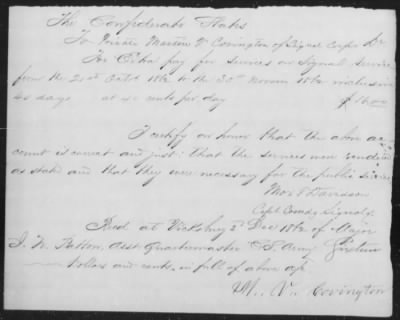 The Confederate States
To Private Marten V Covington of Signal Corps Dr
For Extra pay for services on Signal Service
from the 21st Octr 1862 to the 30th Novem 1862 inclusive
40 days at 40 cents per day $16.00
I certify on honor that the above ac
count is correct and just; that the services were rendered
as stated and that they were necessary for the public service
Thos T Davidson
Capt Comdg Signal
Recd at Vicksburg 2d Dec 1862 of Major
J. W. Patton, Asst Quartermaster C. S. Army Sixteen
dollars and cents, in full of above
M. V. Covington